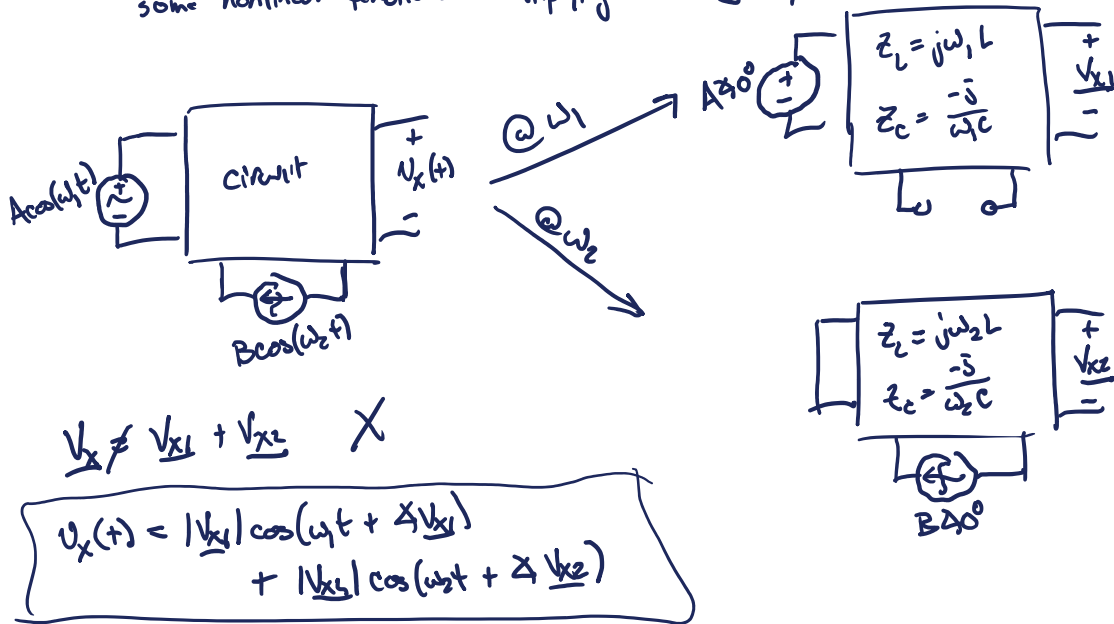 some nonlinear
Acos(ω₁t)
+
−
circuit
+
v_x(t)
−
Bcos(ω₂t)
@ω₁
@ω₂
A∡0°
+
−
Z_L = jω₁L
Z_C = -j/ω₁C
+
V_x1
−
Z_L = jω₂L
Z_C = -j/ω₂C
+
V_x2
−
B∡0°
V_x ≠ V_x1 + V_x2 X
v_x(t) = |V_x1| cos(ω₁t + ∡V_x1)
+ |V_x2| cos(ω₂t + ∡V_x2)